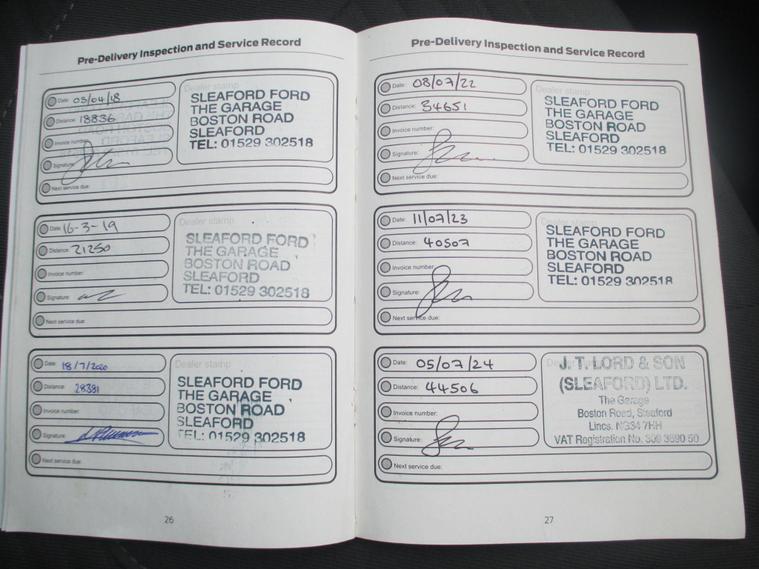 Pre-Delivery Inspection and Service Record
Dealer stamp
Date: 03/04/18
Distance: 18836
Invoice number:
Signature:
Next service due:
SLEAFORD FORD
THE GARAGE
BOSTON ROAD
SLEAFORD
TEL: 01529 302518
Dealer stamp
Date: 16-3-19
Distance: 21250
Invoice number:
Signature:
Next service due:
SLEAFORD FORD
THE GARAGE
BOSTON ROAD
SLEAFORD
TEL: 01529 302518
Dealer stamp
Date: 18/7/2020
Distance: 28391
Invoice number:
Signature:
Next service due:
SLEAFORD FORD
THE GARAGE
BOSTON ROAD
SLEAFORD
TEL: 01529 302518
26
Pre-Delivery Inspection and Service Record
Dealer stamp
Date: 08/07/22
Distance: 34651
Invoice number:
Signature:
Next service due:
SLEAFORD FORD
THE GARAGE
BOSTON ROAD
SLEAFORD
TEL: 01529 302518
Date: 11/07/23
Distance: 40507
Invoice number:
Signature:
Next service due:
SLEAFORD FORD
THE GARAGE
BOSTON ROAD
SLEAFORD
TEL: 01529 302518
Date: 05/07/24
Distance: 44506
Invoice number:
Signature:
Next service due:
J. T. LORD & SON
(SLEAFORD) LTD.
The Garage
Boston Road, Sleaford
Lincs. NG34 7HH
VAT Registration No. 309 3690 50
27